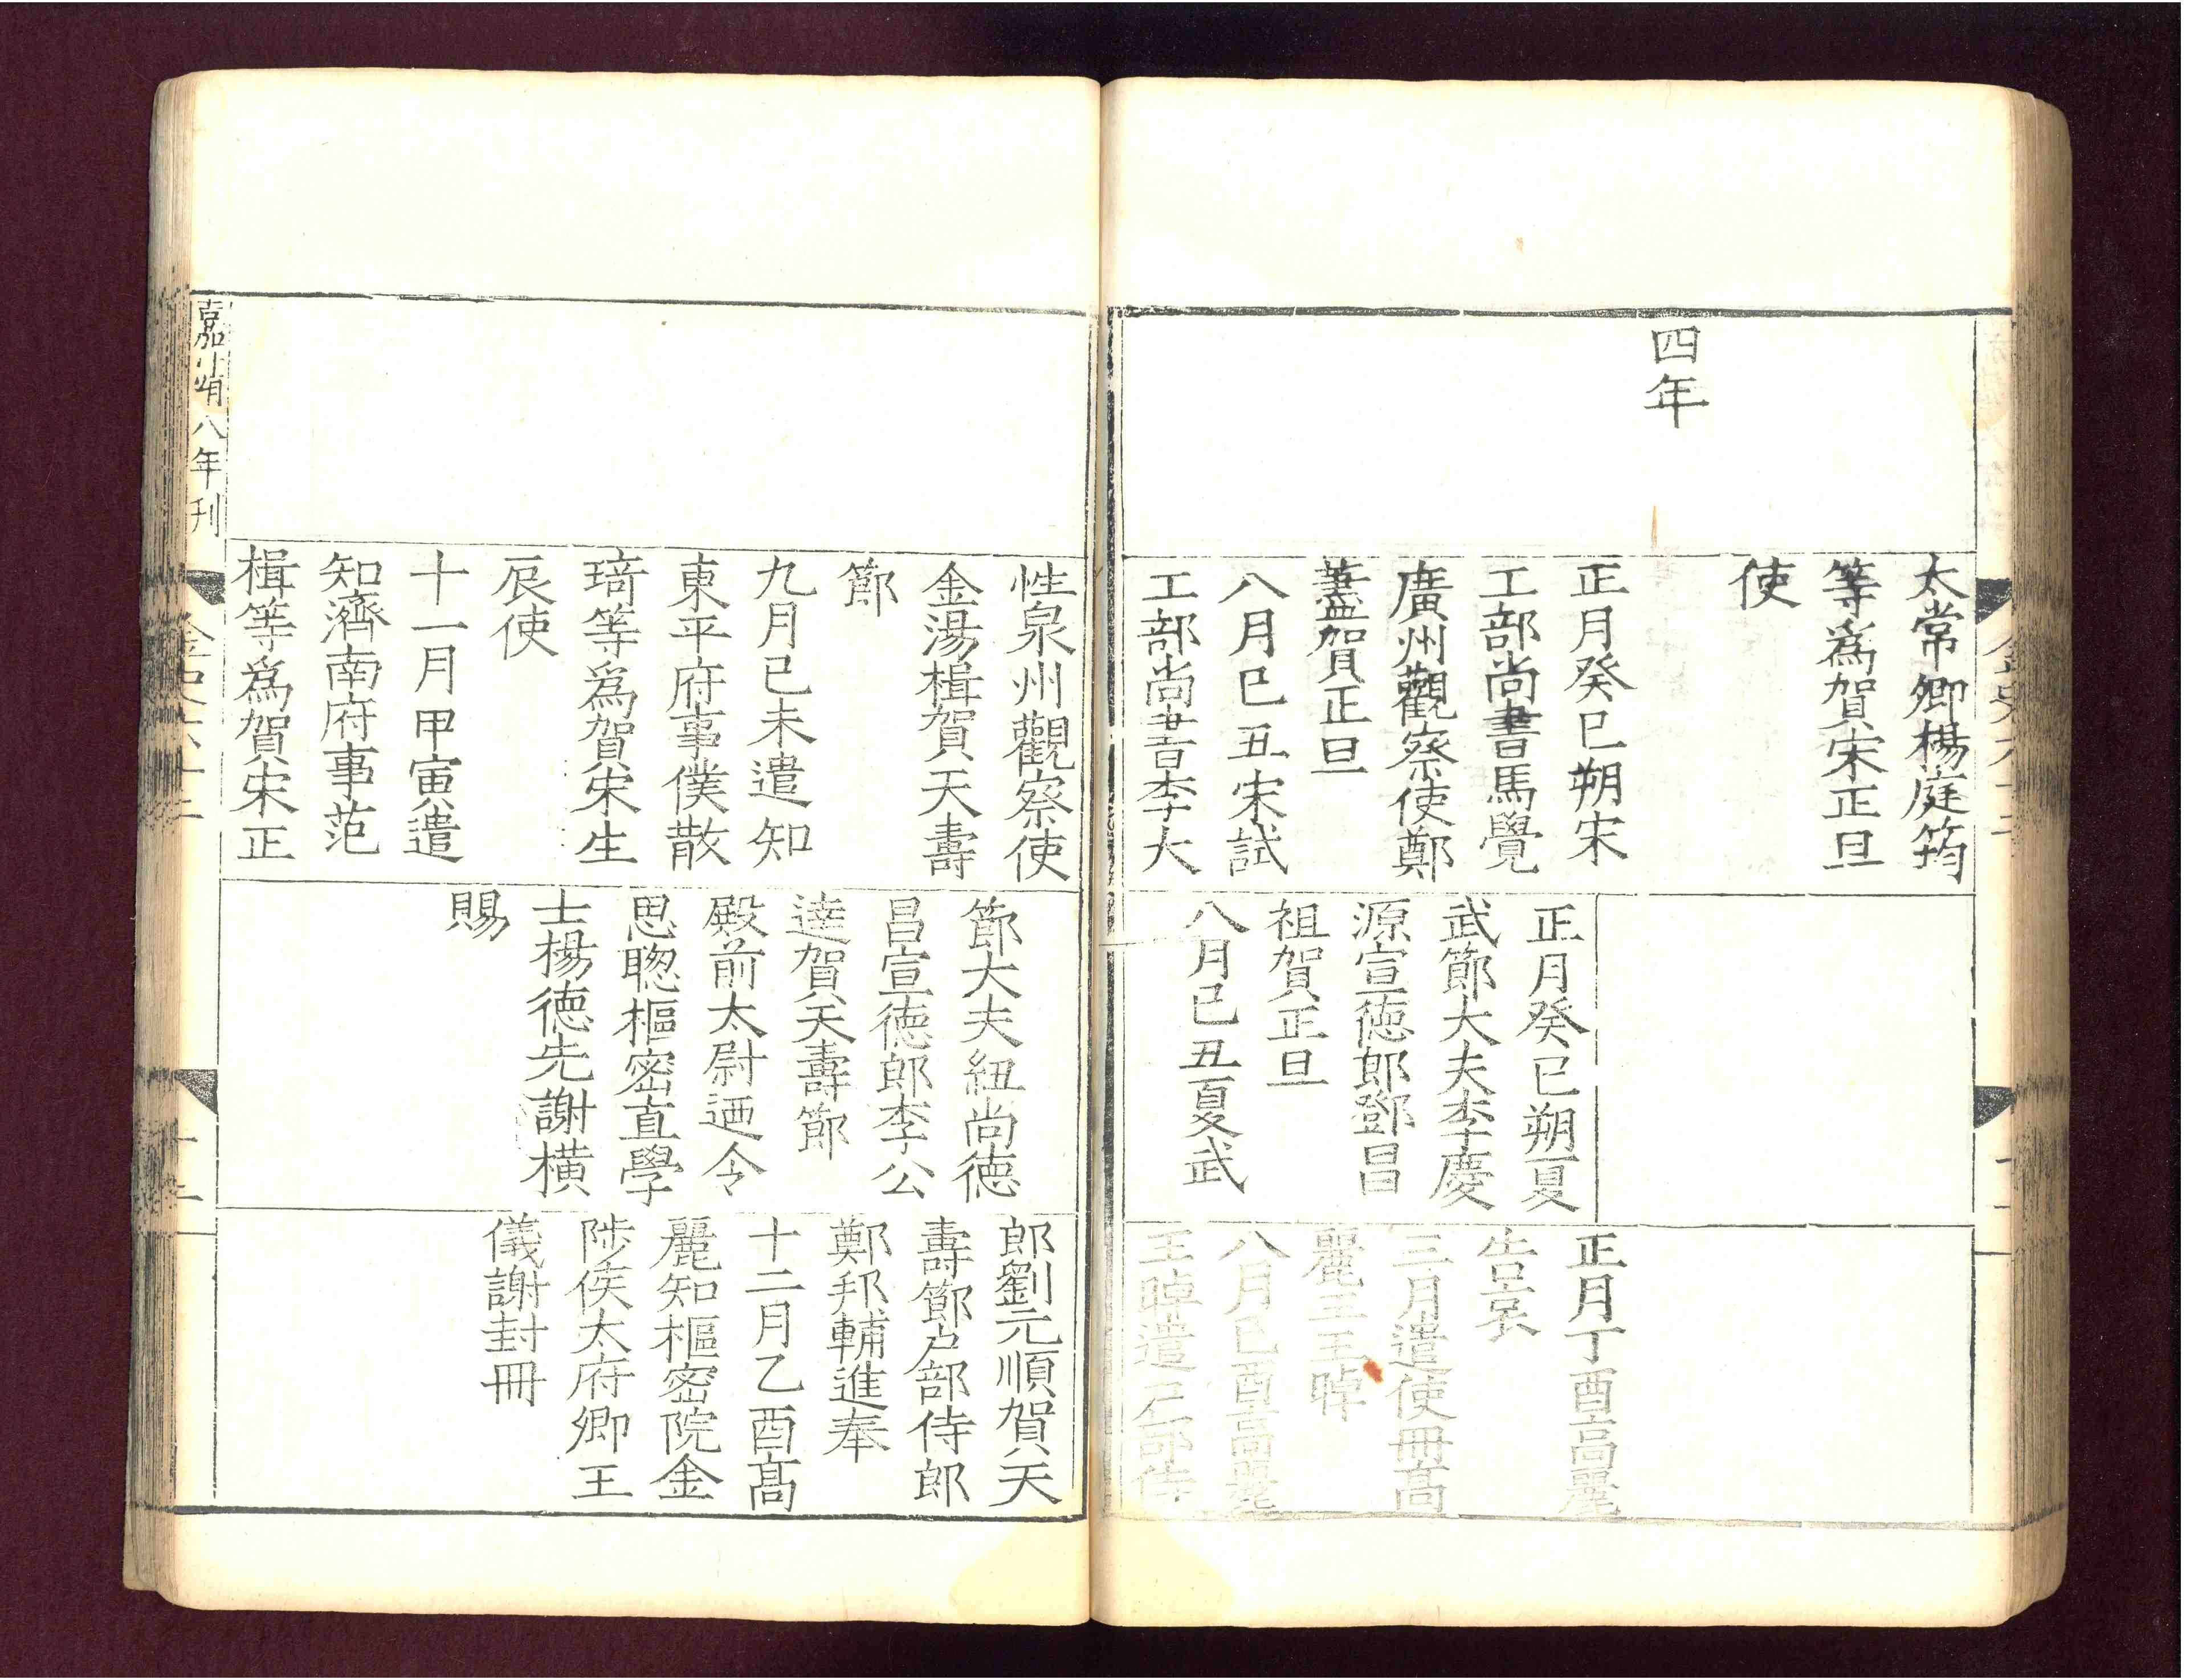 四年
太常卿楊庭筠
等爲賀宋正旦
使
正月癸巳朔宋
工部尚書馬覺
廣州觀察使鄭
蓋賀正旦
八月己丑宋試
工部尚書李大
正月癸巳朔夏
武節大夫李慶
源宣德郎鄧昌
祖賀正旦
八月己丑夏武
正月丁酉高麗
告哀
三月遣使冊高
麗王王晫
八月己酉高麗
王晫遣戶部侍
性泉州觀察使
金湯楫賀天壽
節
九月己未遣知
東平府事僕散
琦等爲賀宋生
辰使
十一月甲寅遣
知濟南府事范
楫等爲賀宋正
節大夫紐尚德
昌宣德郎李公
達賀天壽節
殿前太尉迺令
思聦樞密直學
士楊德先謝橫
賜
郎劉元順賀天
壽節戶部侍郎
鄭邦輔進奉
十二月乙酉高
麗知樞密院金
陟侯太府卿王
儀謝封冊
嘉靖八年刊
金史六十二
十二